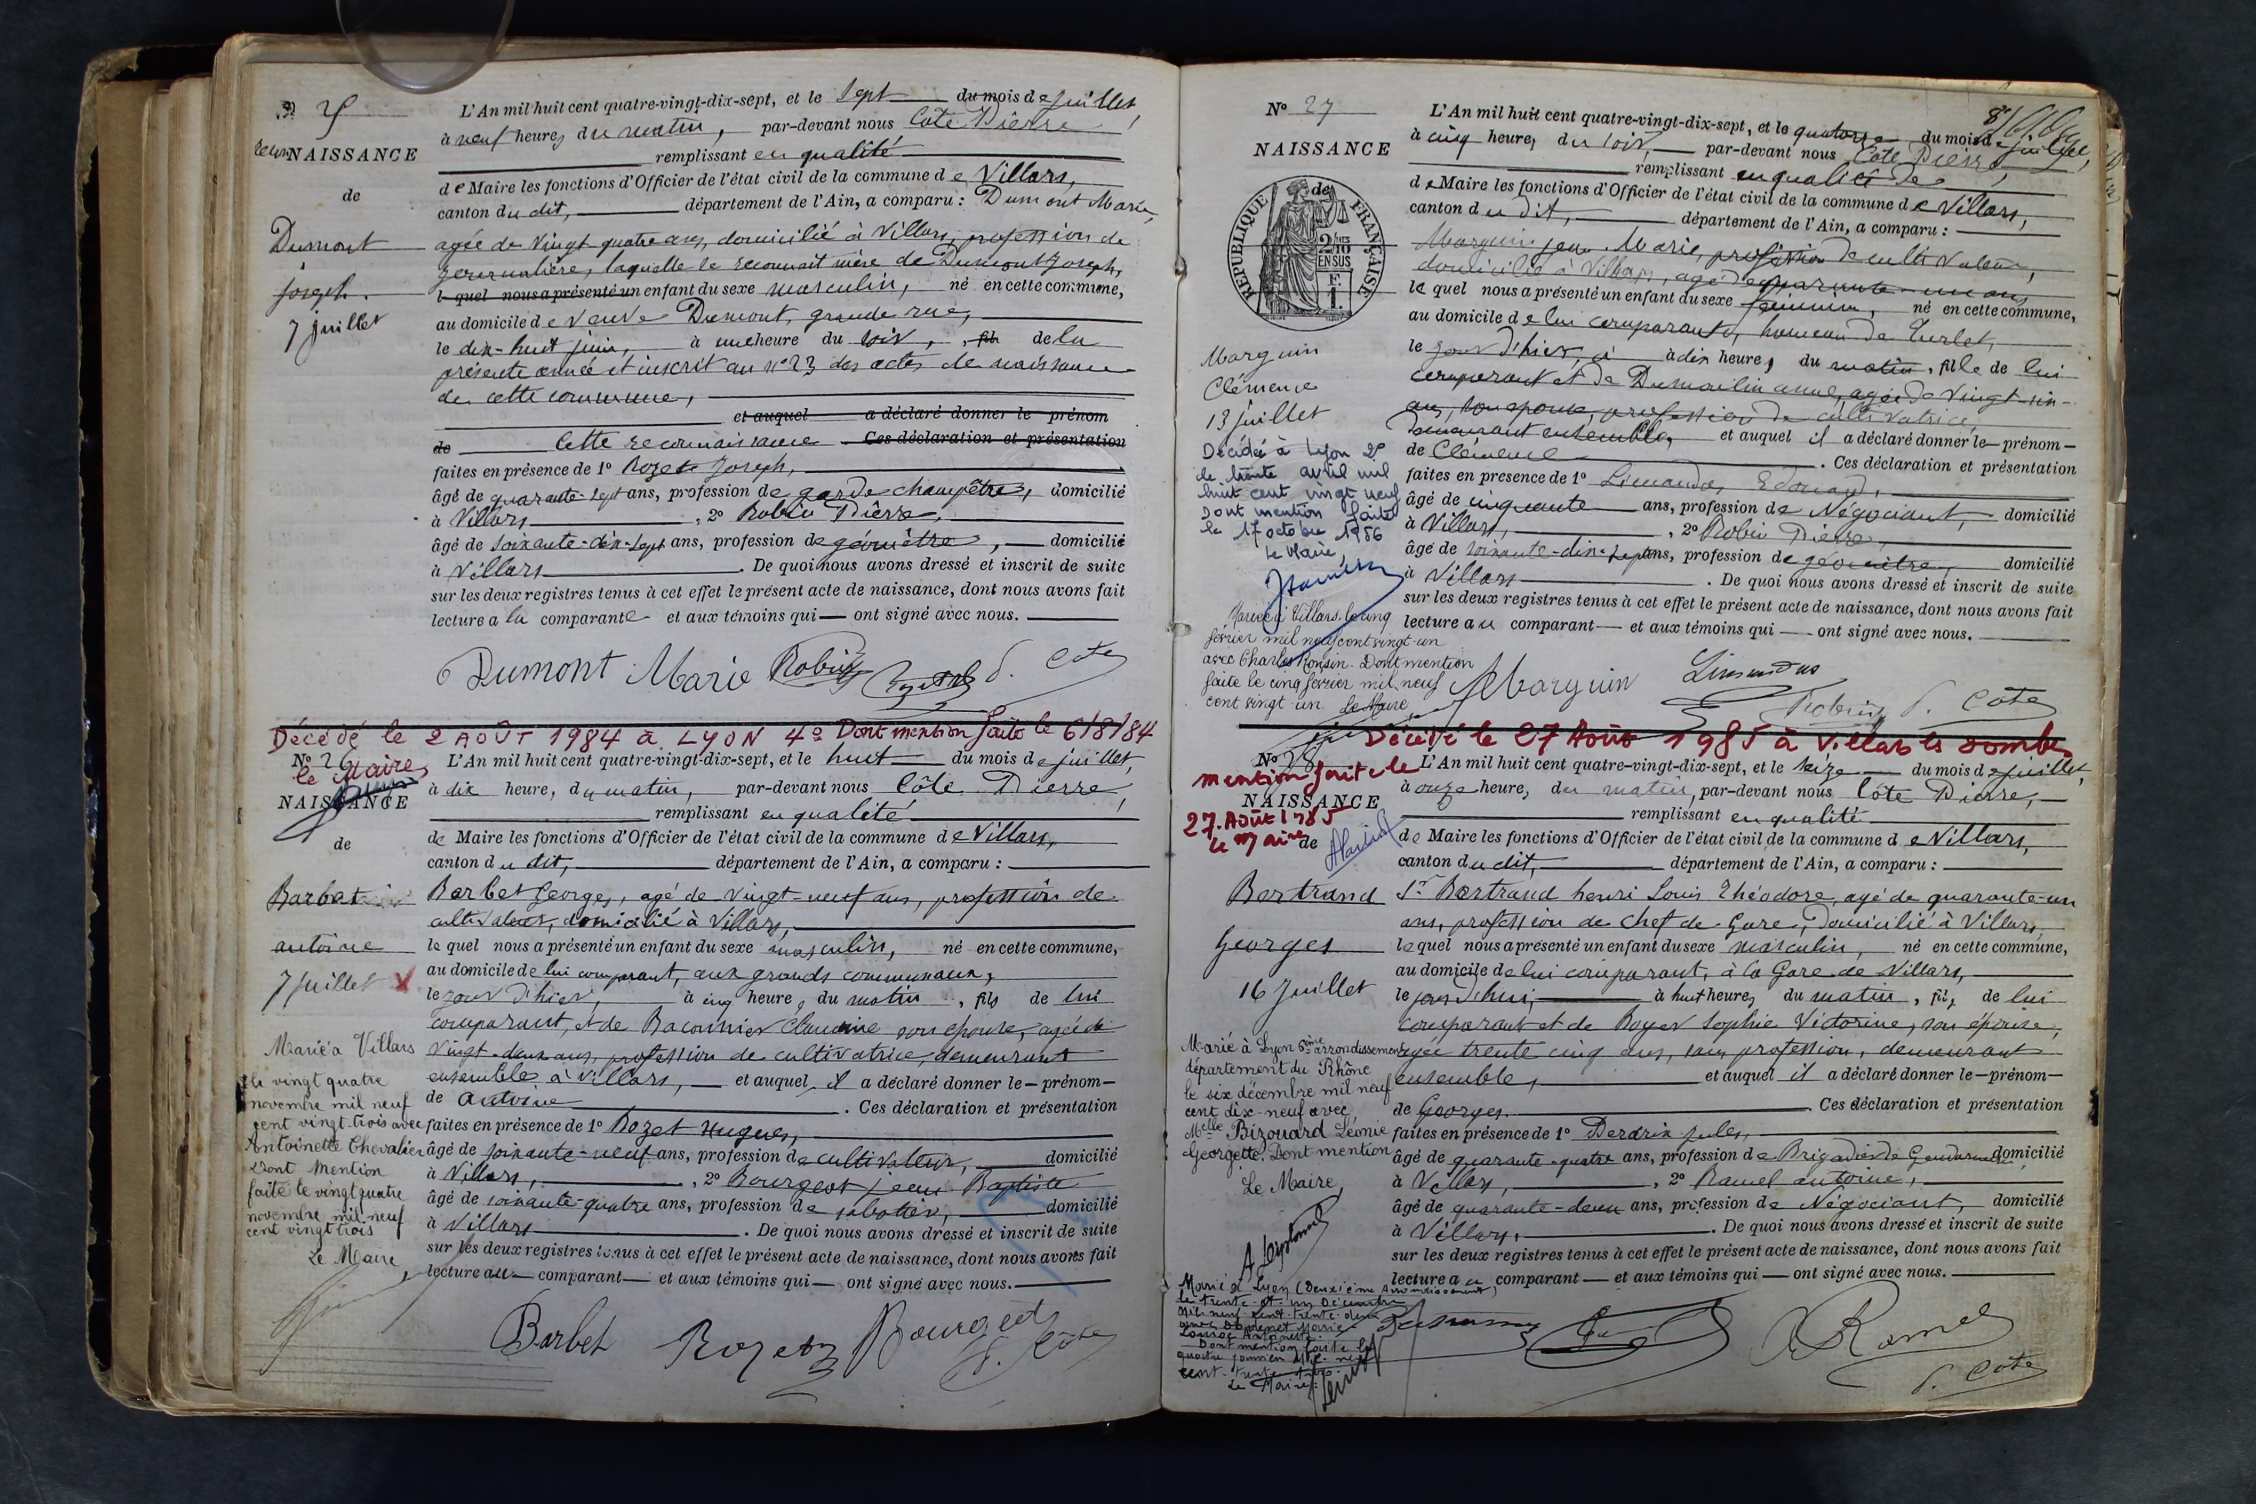 L'An mil huit cent quatre-vingt-dix-sept, et le sept du mois de juillet,
à neuf heures du matin, par-devant nous Côte Pierre
NAISSANCE
remplissant en qualité
de Maire les fonctions d'Officier de l'état civil de la commune de Villars,
de
canton du dit, département de l'Ain, a comparu : Dumont Marie,
Dumont
agée de vingt quatre ans, domicilié à Villars, profession de
journalière, laquelle se reconnait mère de Dumont Joseph,
joseph.
le quel nous a présenté un enfant du sexe masculin, né en cette commune,
7 juillet
au domicile de veuve Dumont, grande rue,
le dix-huit juin, à une heure du soir, fils de la
présente année et inscrit au n° 23 des actes de naissance
de cette commune,
et auquel a déclaré donner le prénom
de Cette reconnaissance Ces déclaration et présentation
faites en présence de 1° Rozet Joseph,
âgé de quarante-sept ans, profession de garde champêtre, domicilié
à Villars, 2° Robin Pierre,
âgé de soixante-dix-sept ans, profession de géomètre, domicilié
à Villars. De quoi nous avons dressé et inscrit de suite
sur les deux registres tenus à cet effet le présent acte de naissance, dont nous avons fait
lecture a la comparante et aux témoins qui ont signé avec nous.
Dumont Marie Robin P. Cote
Décédé le 2 AOÛT 1984 à LYON 4e Dont mention faite le 6/8/84
le Maire
N° 26
L'An mil huit cent quatre-vingt-dix-sept, et le huit du mois de juillet,
à dix heure, du matin, par-devant nous Côte Pierre,
NAISSANCE
remplissant en qualité
de Maire les fonctions d'Officier de l'état civil de la commune de Villars,
de
canton du dit, département de l'Ain, a comparu :
Barbet
Barbet Georges, agé de vingt-neuf ans, profession de
cultivateur, domicilié à Villars,
antoine
le quel nous a présenté un enfant du sexe masculin, né en cette commune,
7 juillet X
au domicile de lui comparant, aux grands communaux,
le jour d'hier, à cinq heure, du matin, fils de lui
comparant, et de Raconnier Claudine son épouse, agée de
vingt-deux ans, profession de cultivatrice, demeurant
ensembles à Villars, et auquel il a déclaré donner le prénom
de antoine. Ces déclaration et présentation
faites en présence de 1° Rozet Hugues,
âgé de soixante-neuf ans, profession de cultivateur, domicilié
à Villars, 2° Bourgeot jean Baptiste
âgé de soixante-quatre ans, profession de sabotier, domicilié
à Villars. De quoi nous avons dressé et inscrit de suite
sur les deux registres tenus à cet effet le présent acte de naissance, dont nous avons fait
lecture au comparant et aux témoins qui ont signé avec nous.
Marié à Villars
le vingt quatre
novembre mil neuf
cent vingt trois avec
Antoinette Chevalier
dont mention
faite le vingt quatre
novembre mil neuf
cent vingt trois
Le Maire,
Barbet Rozet Bourgeot P. Côte
N° 27
L'An mil huit cent quatre-vingt-dix-sept, et le quatorze du mois de juillet,
à cinq heure, du soir, par-devant nous Côte Pierre,
NAISSANCE
remplissant en qualité de
de Maire les fonctions d'Officier de l'état civil de la commune de Villars,
canton du dit, département de l'Ain, a comparu :
de
RÉPUBLIQUE FRANÇAISE
2/10
EN SUS
1 F.
Marguin jean-Marie, profession de cultivateur,
domicilié à Villars, agé de quarante-un ans
le quel nous a présenté un enfant du sexe féminin, né en cette commune,
au domicile de lui comparant, hameau de Turlet,
le jour d'hier, à dix heure, du matin, fille de lui
comparant et de Dumoulin anne, agée de vingt-six
ans, son épouse, profession de cultivatrice,
demeurant ensemble, et auquel il a déclaré donner le prénom
de Clémence. Ces déclaration et présentation
faites en présence de 1° Limandas Edouard,
âgé de cinquante ans, profession de Négociant, domicilié
à Villars, 2° Robin Pierre,
âgé de soixante-dix-sept ans, profession de géomètre, domicilié
à Villars. De quoi nous avons dressé et inscrit de suite
sur les deux registres tenus à cet effet le présent acte de naissance, dont nous avons fait
lecture au comparant et aux témoins qui ont signé avec nous.
Marguin
Clémence
13 juillet
Décédée à Lyon 2e
le trente avril mil
huit cent vingt neuf
Dont mention faite
le 17 octobre 1986
Le Maire,
Mariée à Villars le cinq
février mil neuf cent vingt un
avec Charles Ronsin. Dont mention
faite le cinq février mil neuf
cent vingt un Le Maire
Marguin Limandas Robin P. Cote
Décédé le 27 Août 1985 à Villars les Dombes
mention faite le
27. Août 1985
le Maire
N° 28
L'An mil huit cent quatre-vingt-dix-sept, et le seize du mois de juillet,
à onze heure, du matin, par-devant nous Côte Pierre,
NAISSANCE
remplissant en qualité
de Maire les fonctions d'Officier de l'état civil de la commune de Villars,
de
canton du dit, département de l'Ain, a comparu :
Bertrand
Sr Bertrand henri Louis Théodore, agé de quarante-un
ans, profession de Chef de Gare, domicilié à Villars,
Georges
le quel nous a présenté un enfant du sexe masculin, né en cette commune,
au domicile de lui comparant, à la Gare de Villars,
16 Juillet
le jourd'hui, à huit heure, du matin, fils de lui
comparant et de Boyer Sophie Victorine, son épouse,
agée trente cinq ans, sans profession, demeurant
ensemble, et auquel il a déclaré donner le prénom
de Georges. Ces déclaration et présentation
faites en présence de 1° Perdrix jules,
âgé de quarante-quatre ans, profession de Brigadier de Gendarmerie, domicilié
à Villars, 2° Ramel antoine,
âgé de quarante-deux ans, profession de Négociant, domicilié
à Villars. De quoi nous avons dressé et inscrit de suite
sur les deux registres tenus à cet effet le présent acte de naissance, dont nous avons fait
lecture au comparant et aux témoins qui ont signé avec nous.
Marié à Lyon 6ème arrondissement
département du Rhône
le six décembre mil neuf
cent dix-neuf avec
Melle Bizouard Léonie
Georgette. Dont mention
Le Maire,
Marié à Lyon (deuxième Arrondissement)
le trente et un Décembre
mil neuf cent trente deux
Louise Antoinette.
Dont mention faite le
quatre janvier mil neuf
cent trente trois.
Le Maire:
Ramel
P. Cote